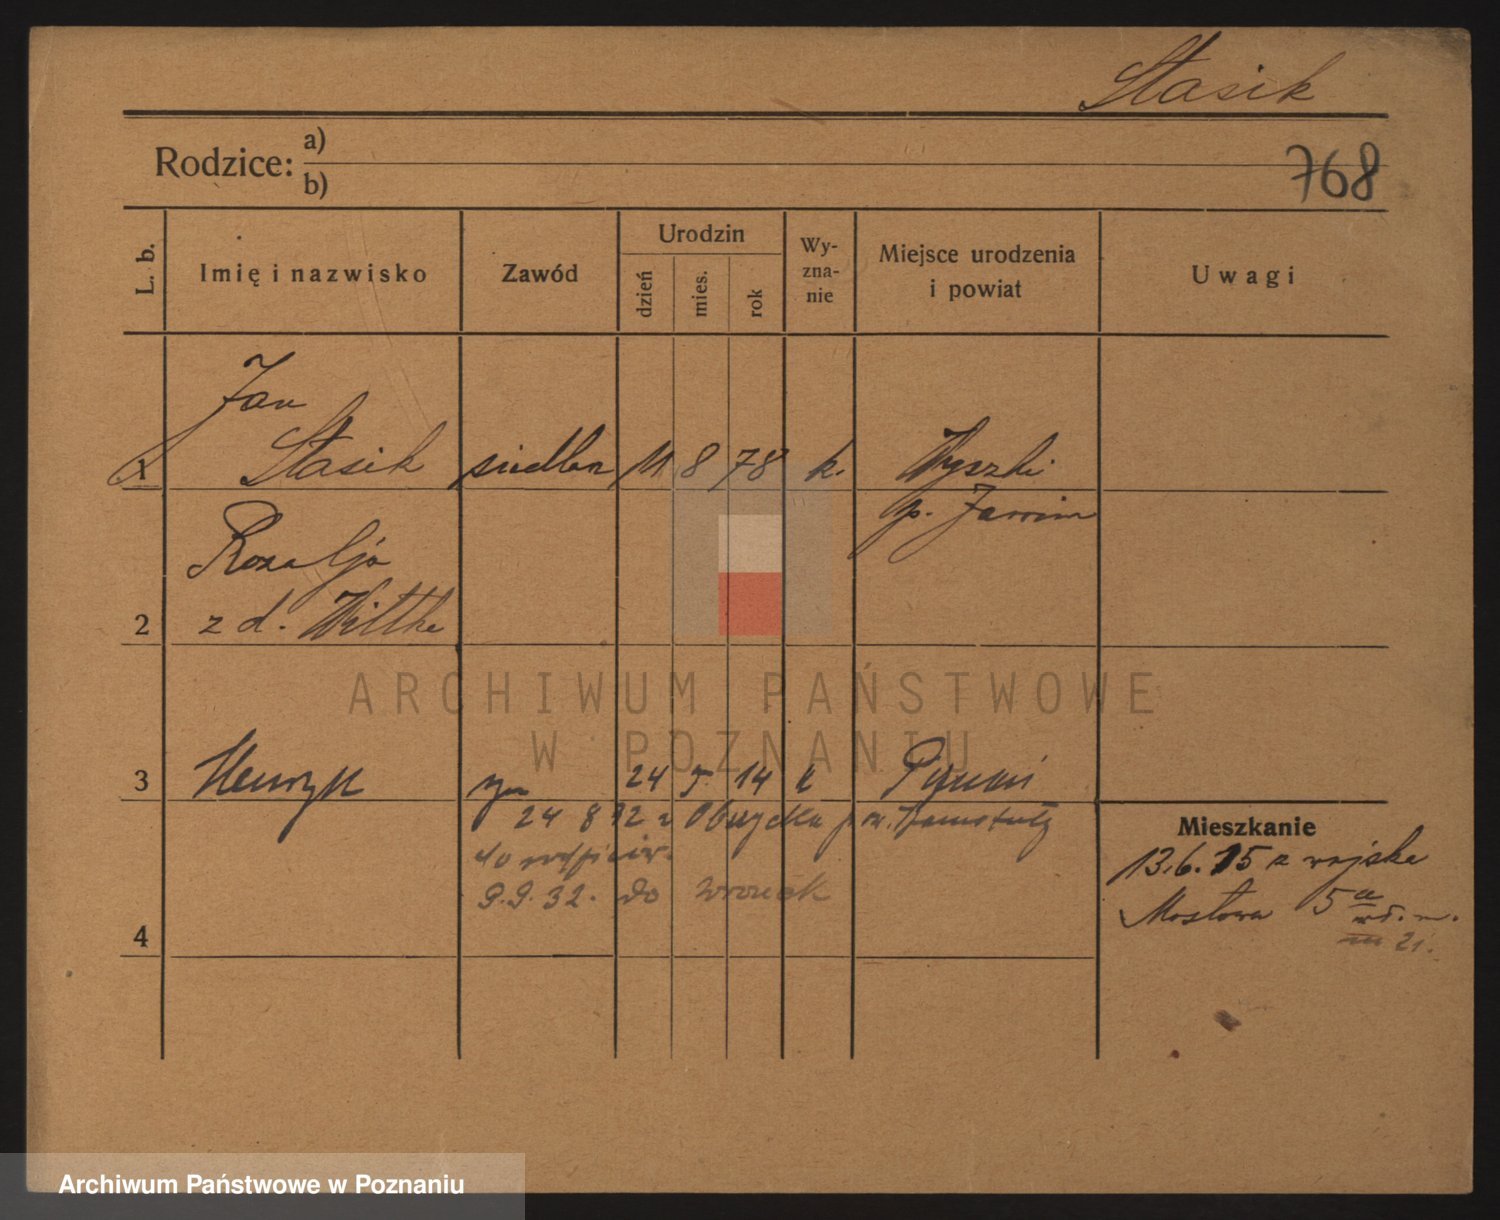 Stasik
Rodzice: a)
b)
768
L. b.
Imię i nazwisko
Zawód
Urodzin
dzień
mies.
rok
Wy-
zna-
nie
Miejsce urodzenia
i powiat
Uwagi
Jan
1 Stasik 11 8 78 k. Wyszki
p.
Rozalja
2 z d. Wittke
3 Henryk syn 24 5. 14 k
24 8 32 z Obrzycka
do
9.9.32. do
4
Mieszkanie
13.6.15 z wojska
Mostowa 5a
21.
ARCHIWUM PAŃSTWOWE
W POZNANIU
Archiwum Państwowe w Poznaniu